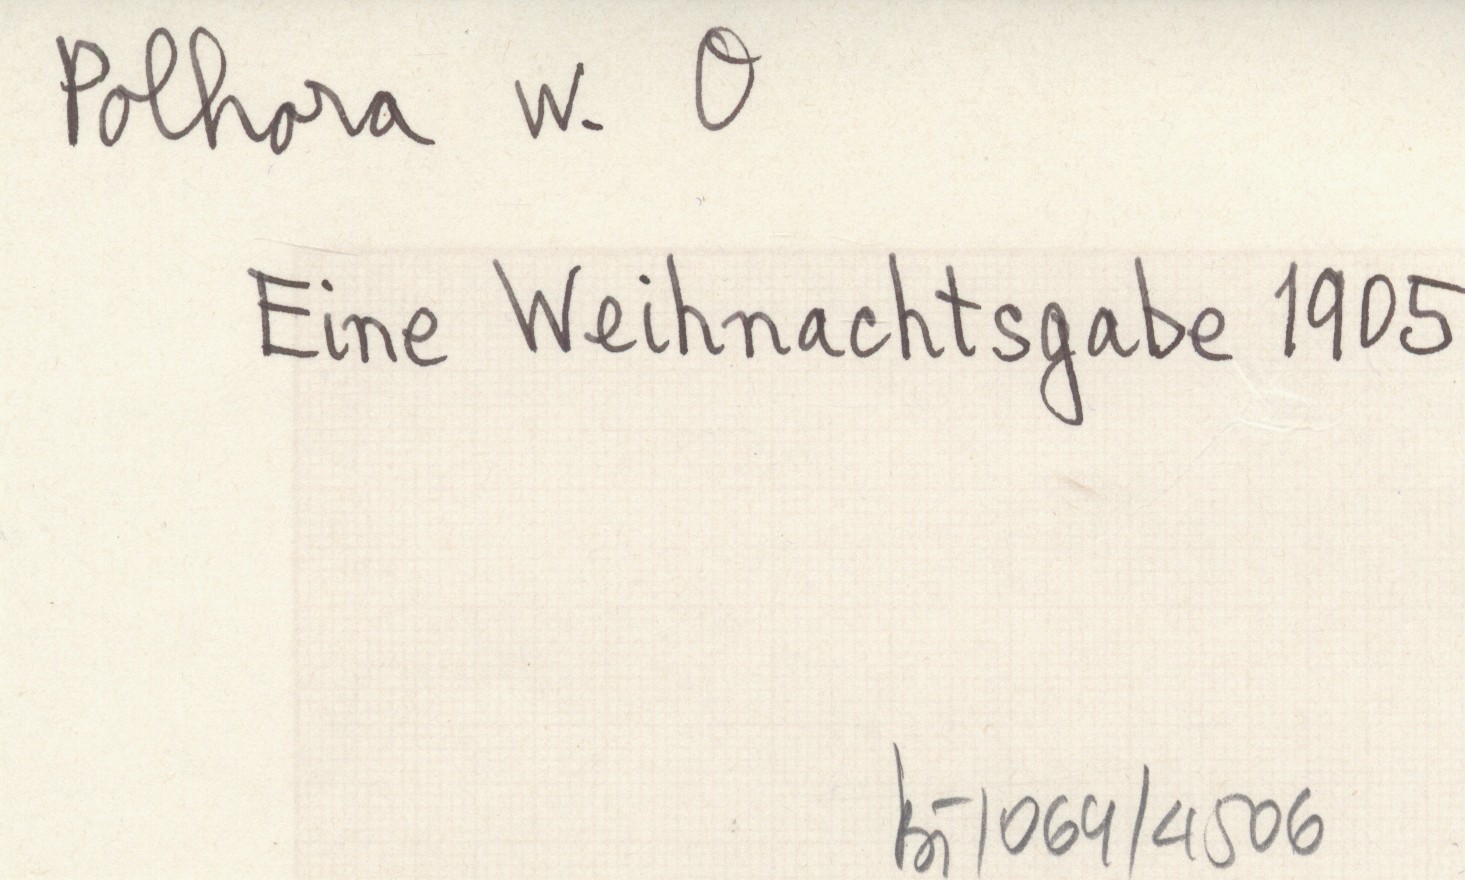 Polhora w. O
Eine Weihnachtsgabe 1905
/069/4506